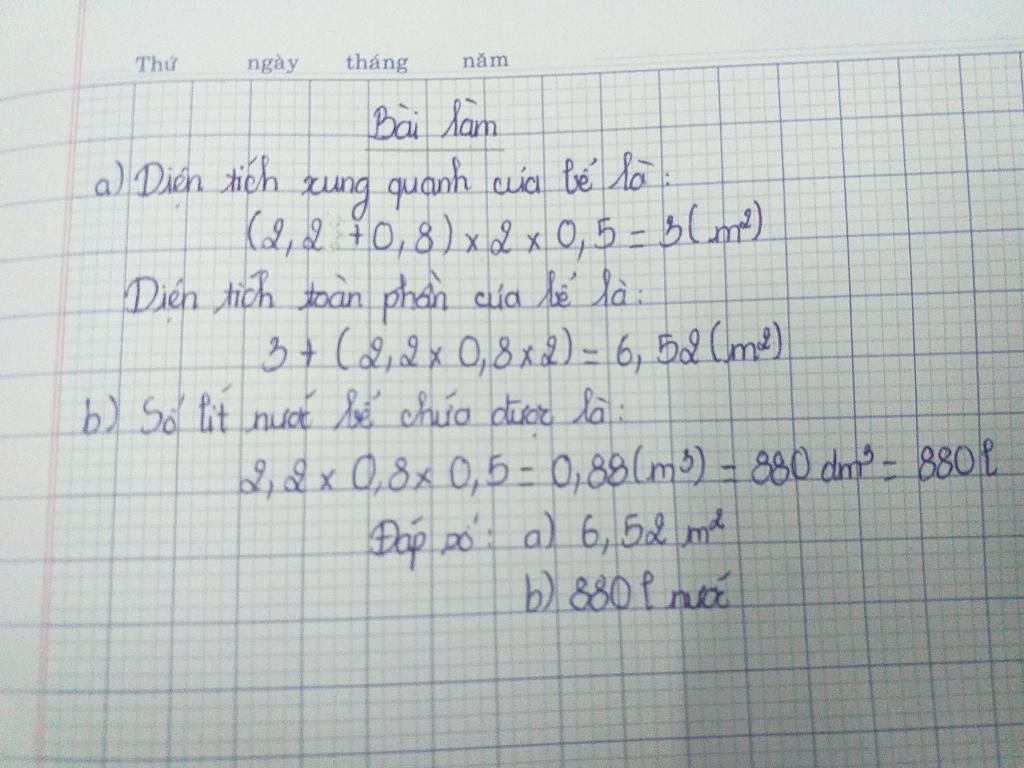 Thứ ngày tháng năm
Bài làm
a) Diện tích xung quanh của bể là:
(2,2 + 0,8) × 2 × 0,5 = 3 (m²)
Diện tích toàn phần của bể là:
3 + (2,2 × 0,8 × 2) = 6,52 (m²)
b) Số lít nước bể chứa được là:
2,2 × 0,8 × 0,5 = 0,88 (m³) = 880 dm³ = 880 l
Đáp số: a) 6,52 m²
b) 880 l nước